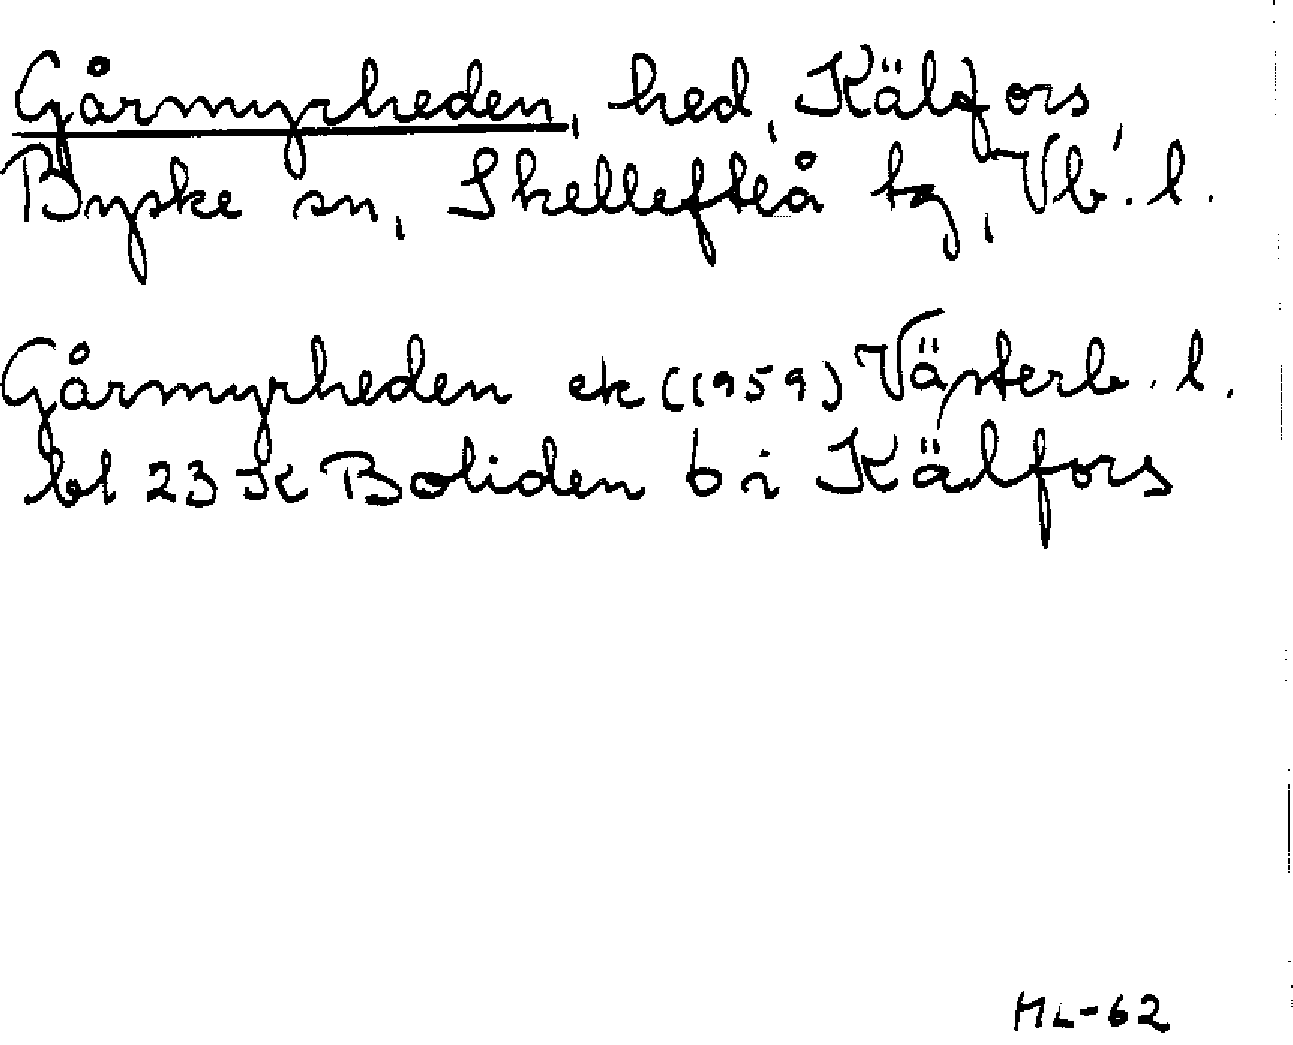 Gårmyrheden, hed, Kälfors,
Byske sn, Skellefteå tg, Vb. l.
Gårmyrheden ek (1959) Västerb. l.
bl 23 K Boliden b i Kälfors
ML-62